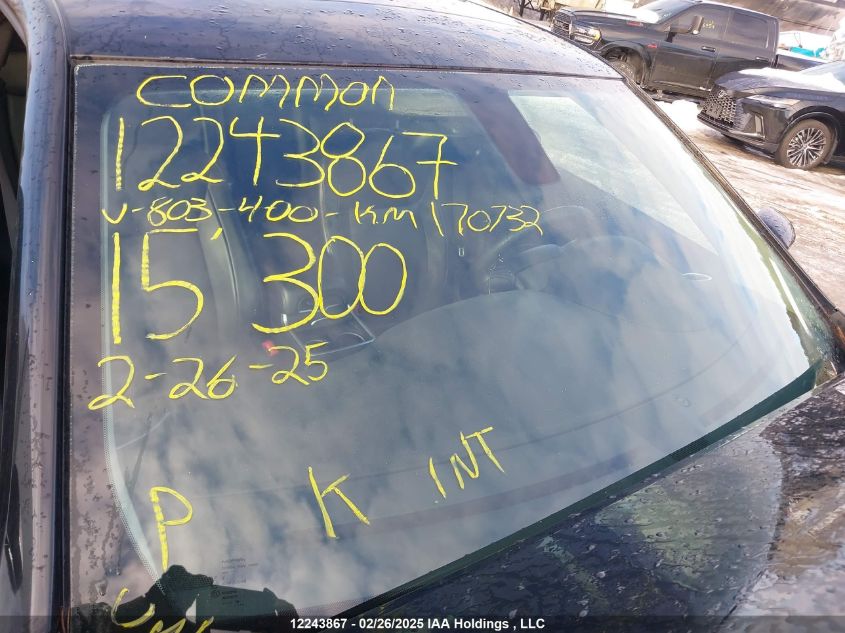 COMMON
12243867
V-803-400-KM170732
15'300
2-26-25
P K INT
12243867 - 02/26/2025 IAA Holdings , LLC